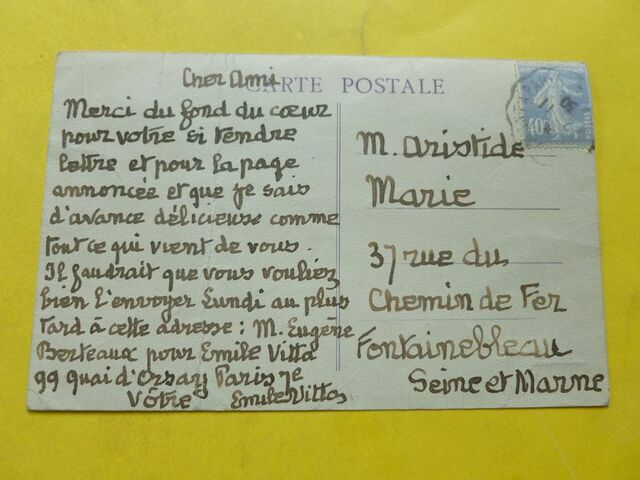 Cher Ami
CARTE POSTALE
Merci du fond du cœur
pour votre si tendre
lettre et pour la page
annoncée et que je sais
d'avance délicieuse comme
tout ce qui vient de vous.
Il faudrait que vous vouliez
bien l'envoyer Lundi au plus
tard à cette adresse : M. Eugène
Berteaux pour Emile Vitta
99 quai d'Orsay Paris 7e
Votre Emile Vitta
M. Aristide
Marie
37 rue du
Chemin de Fer
Fontainebleau
Seine et Marne
40c
POSTES